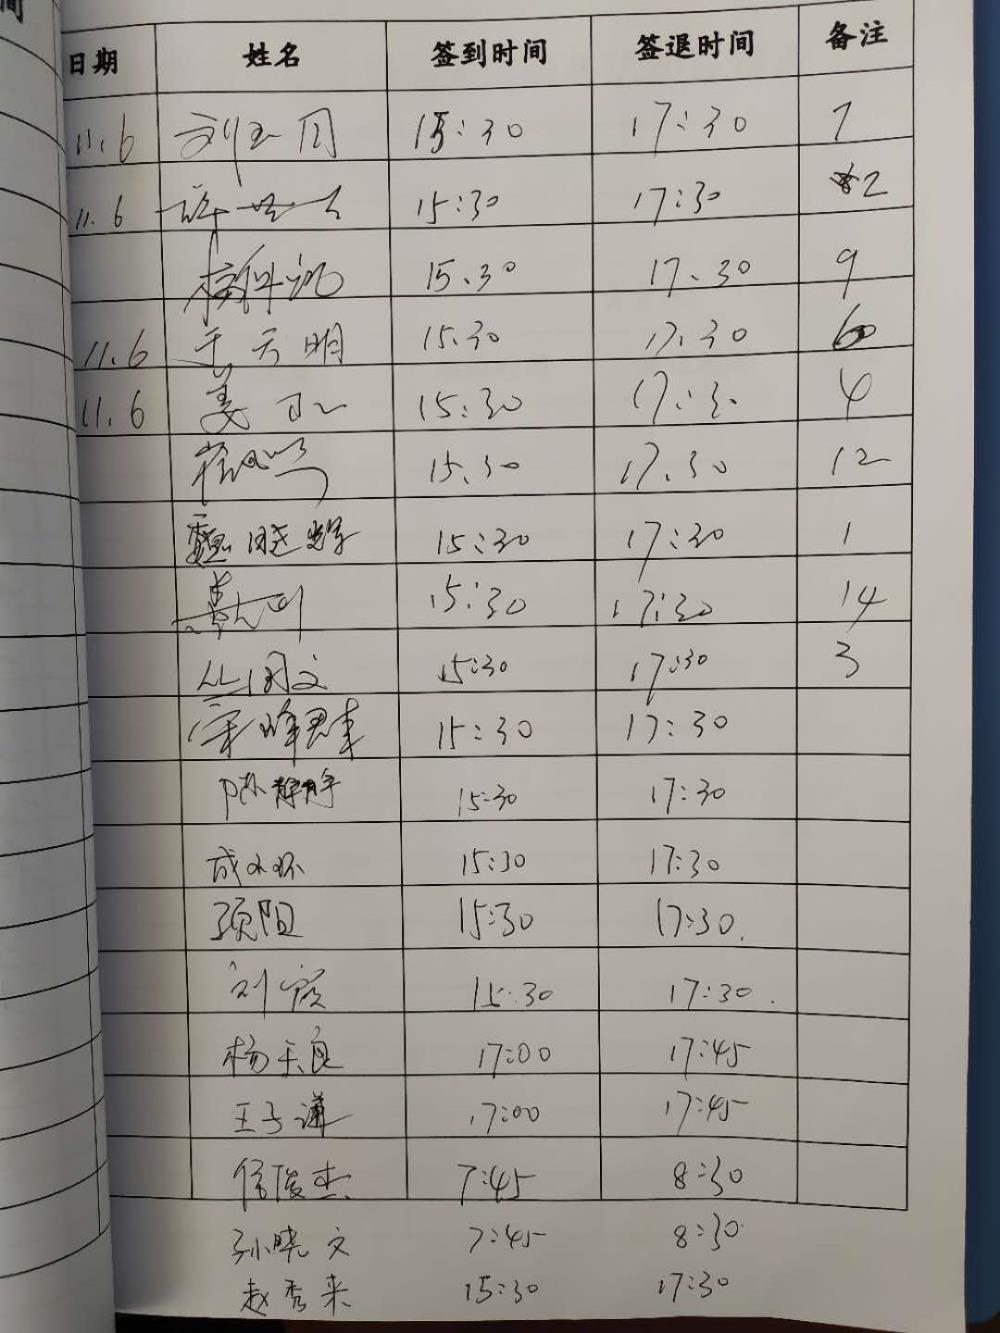 间
日期 姓名 签到时间 签退时间 备注
11.6 刘玉同 15:30 17:30 7
11.6 许 15:30 17:30 2
15.30 17.30 9
11.6 于天明 15.30 17.30 6
11.6 姜 15:30 17:3 4
崔 15.30 17.30 12
魏晓 15:30 17:30 1
15:30 17:30 14
丛闵文 15:30 17:30 3
宋峰 15:30 17:30
陈静静 15:30 17:30
成 15:30 17:30
项阳 15:30 17:30.
刘霞 15:30 17:30.
杨天良 17:00 17:45
王子谦 17:00 17:45
侯俊杰 7:45 8:30
孙晓文 7:45 8:30
赵秀来 15:30 17:30